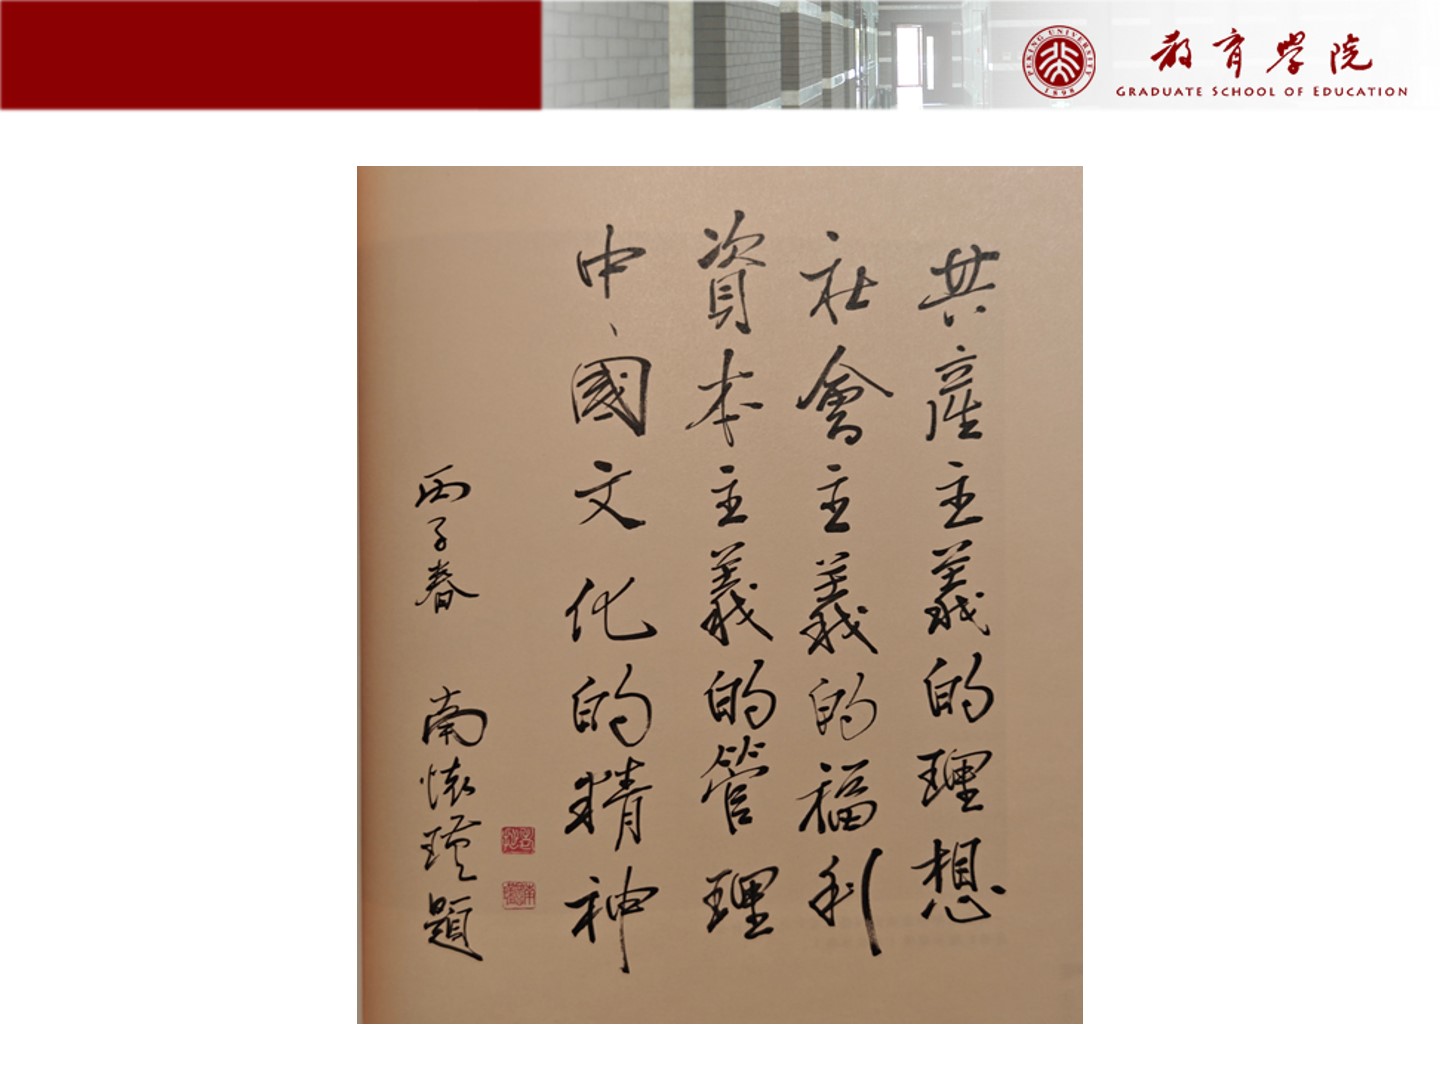 PEKING UNIVERSITY
1898
教育学院
GRADUATE SCHOOL OF EDUCATION
共産主義的理想
社會主義的福利
資本主義的管理
中國文化的精神
丙子春 南懷瑾題